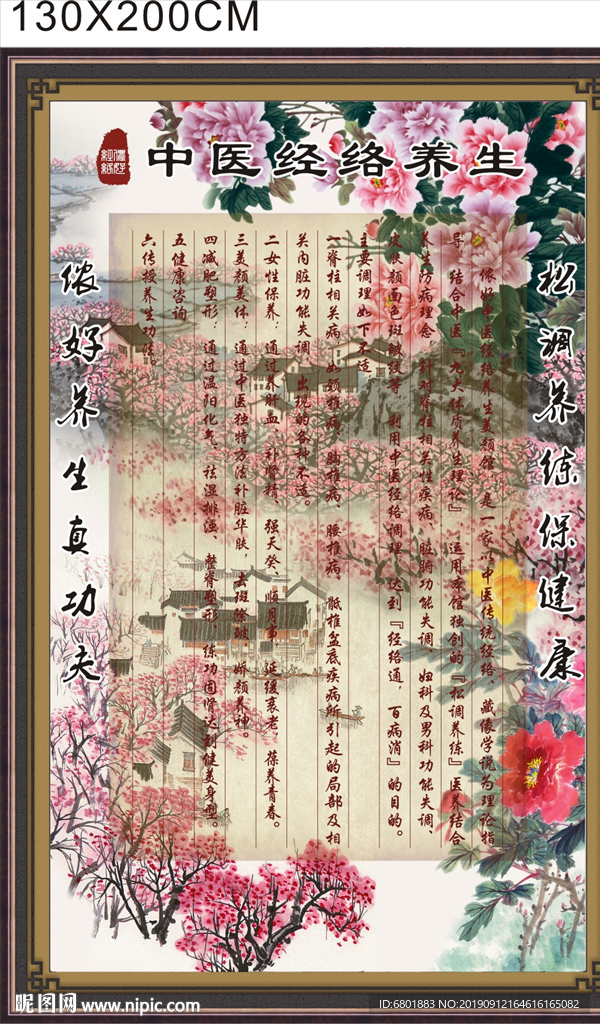 130X200CM
中医经络养生
松调养练保健康
侬好养生真功夫
侬好中医经络养生美颜馆，是一家以中医传统经络、藏像学说为理论指
导，结合中医『九大体质养生理论』，运用本馆独创的『松调养练』医养结合
养生防病理念，针对脊柱相关性疾病，脏腑功能失调、妇科及男科功能失调、
皮肤颜面色斑皱纹等，利用中医经络调理，达到『经络通，百病消』的目的。
主要调理如下不适：
一脊柱相关病：如颈椎病、胸椎病、腰椎病、骶椎盆底疾病所引起的局部及相
关内脏功能失调，出现的各种不适。
二女性保养：通过养肝血、补肾精，强天癸、顺月事，延缓衰老，葆养青春。
三美颜美体：通过中医独特方法补脏华肤，去斑除皱，娇颜养神。
四减肥塑形：通过温阳化气，祛湿排浊，整脊塑形，练功固肾达到健美身型。
五健康咨询
六传授养生功法。
昵图网 www.nipic.com
ID:6801883 NO:20190912164616165082